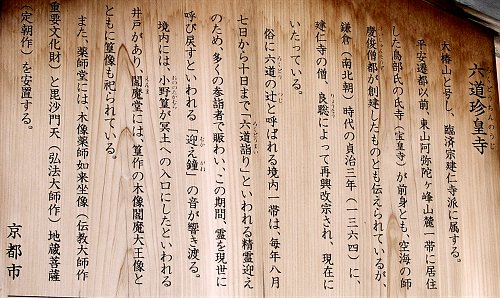 六道珍皇寺
大椿山と号し、臨済宗建仁寺派に属する。
平安遷都以前、東山阿弥陀ヶ峰山麓一帯に居住
した鳥部氏の氏寺（宝皇寺）が前身とも、空海の師
慶俊僧都が創建したものとも伝えられているが、
鎌倉（南北朝）時代の貞治三年（一三六四）に、
建仁寺の僧、良聡によって再興改宗され、現在に
いたっている。
俗に六道の辻と呼ばれる境内一帯は、毎年八月
七日から十日まで「六道詣り」といわれる精霊迎え
のため、多くの参詣者で賑わい、この期間、霊を現世に
呼び戻すといわれる「迎え鐘」の音が響き渡る。
境内には、小野篁が冥土への入口にしたといわれる
井戸があり、閻魔堂には、篁作の木像閻魔大王像と
ともに篁像も祀られている。
また、薬師堂には、木像薬師如来坐像（伝教大師作）
重要文化財）と毘沙門天（弘法大師作）地蔵菩薩
（定朝作）を安置する。
京都市